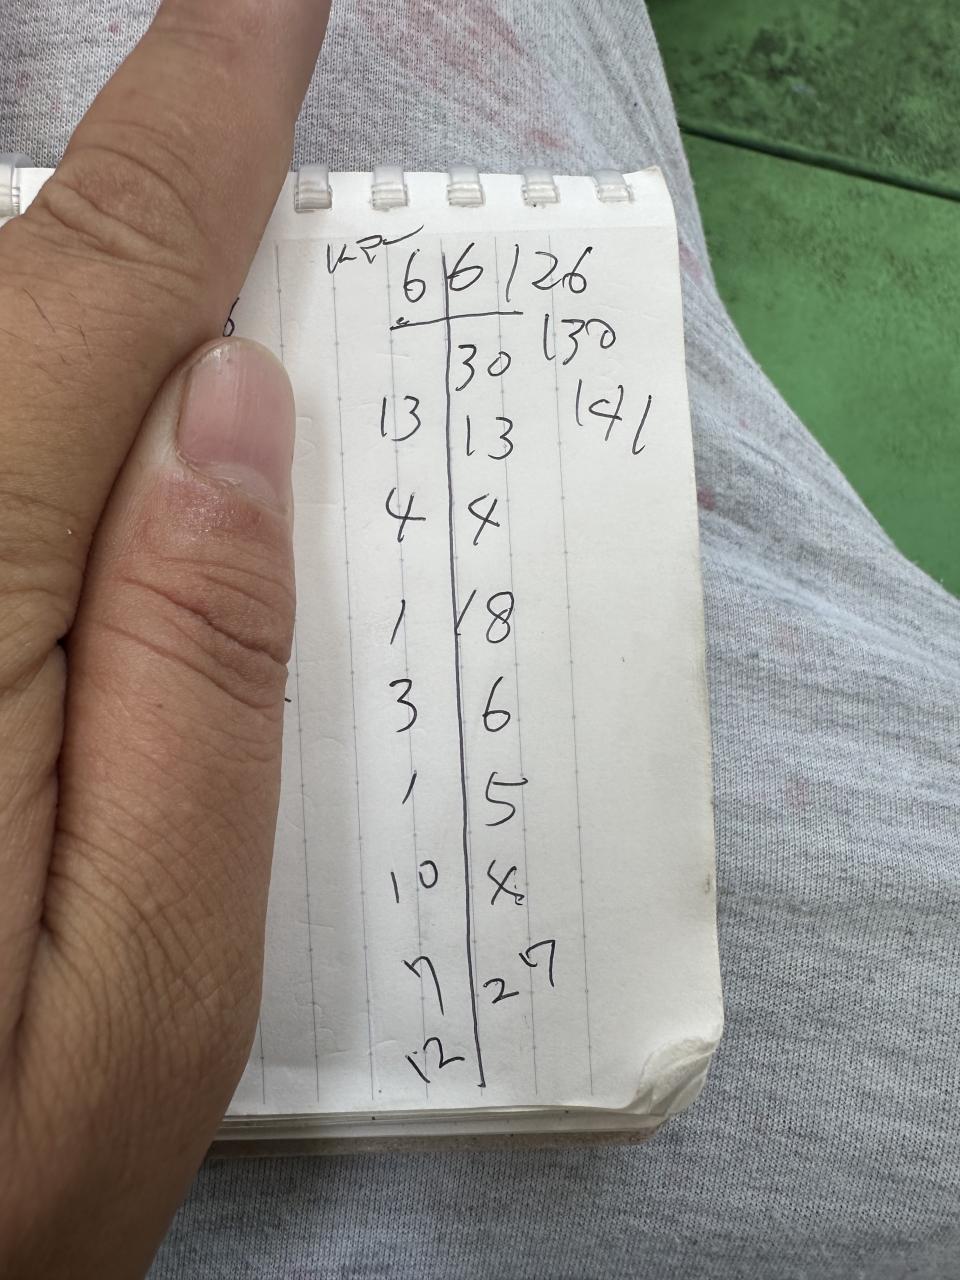 6 6 126
30 130
13 13 141
4 4
1 18
3 6
1 5
10 4
7 27
12